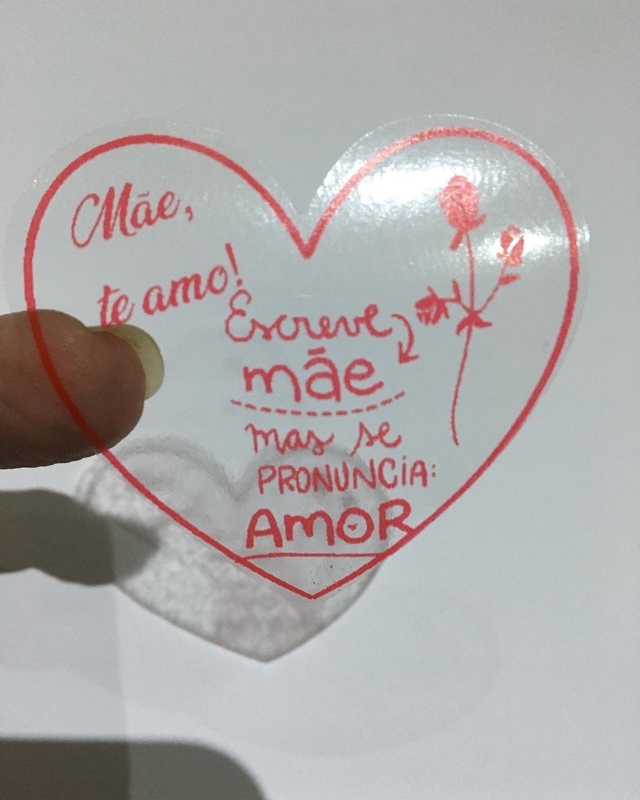 Mãe,
te amo!
Escreve
mãe
mas se
PRONUNCiA:
AMOR